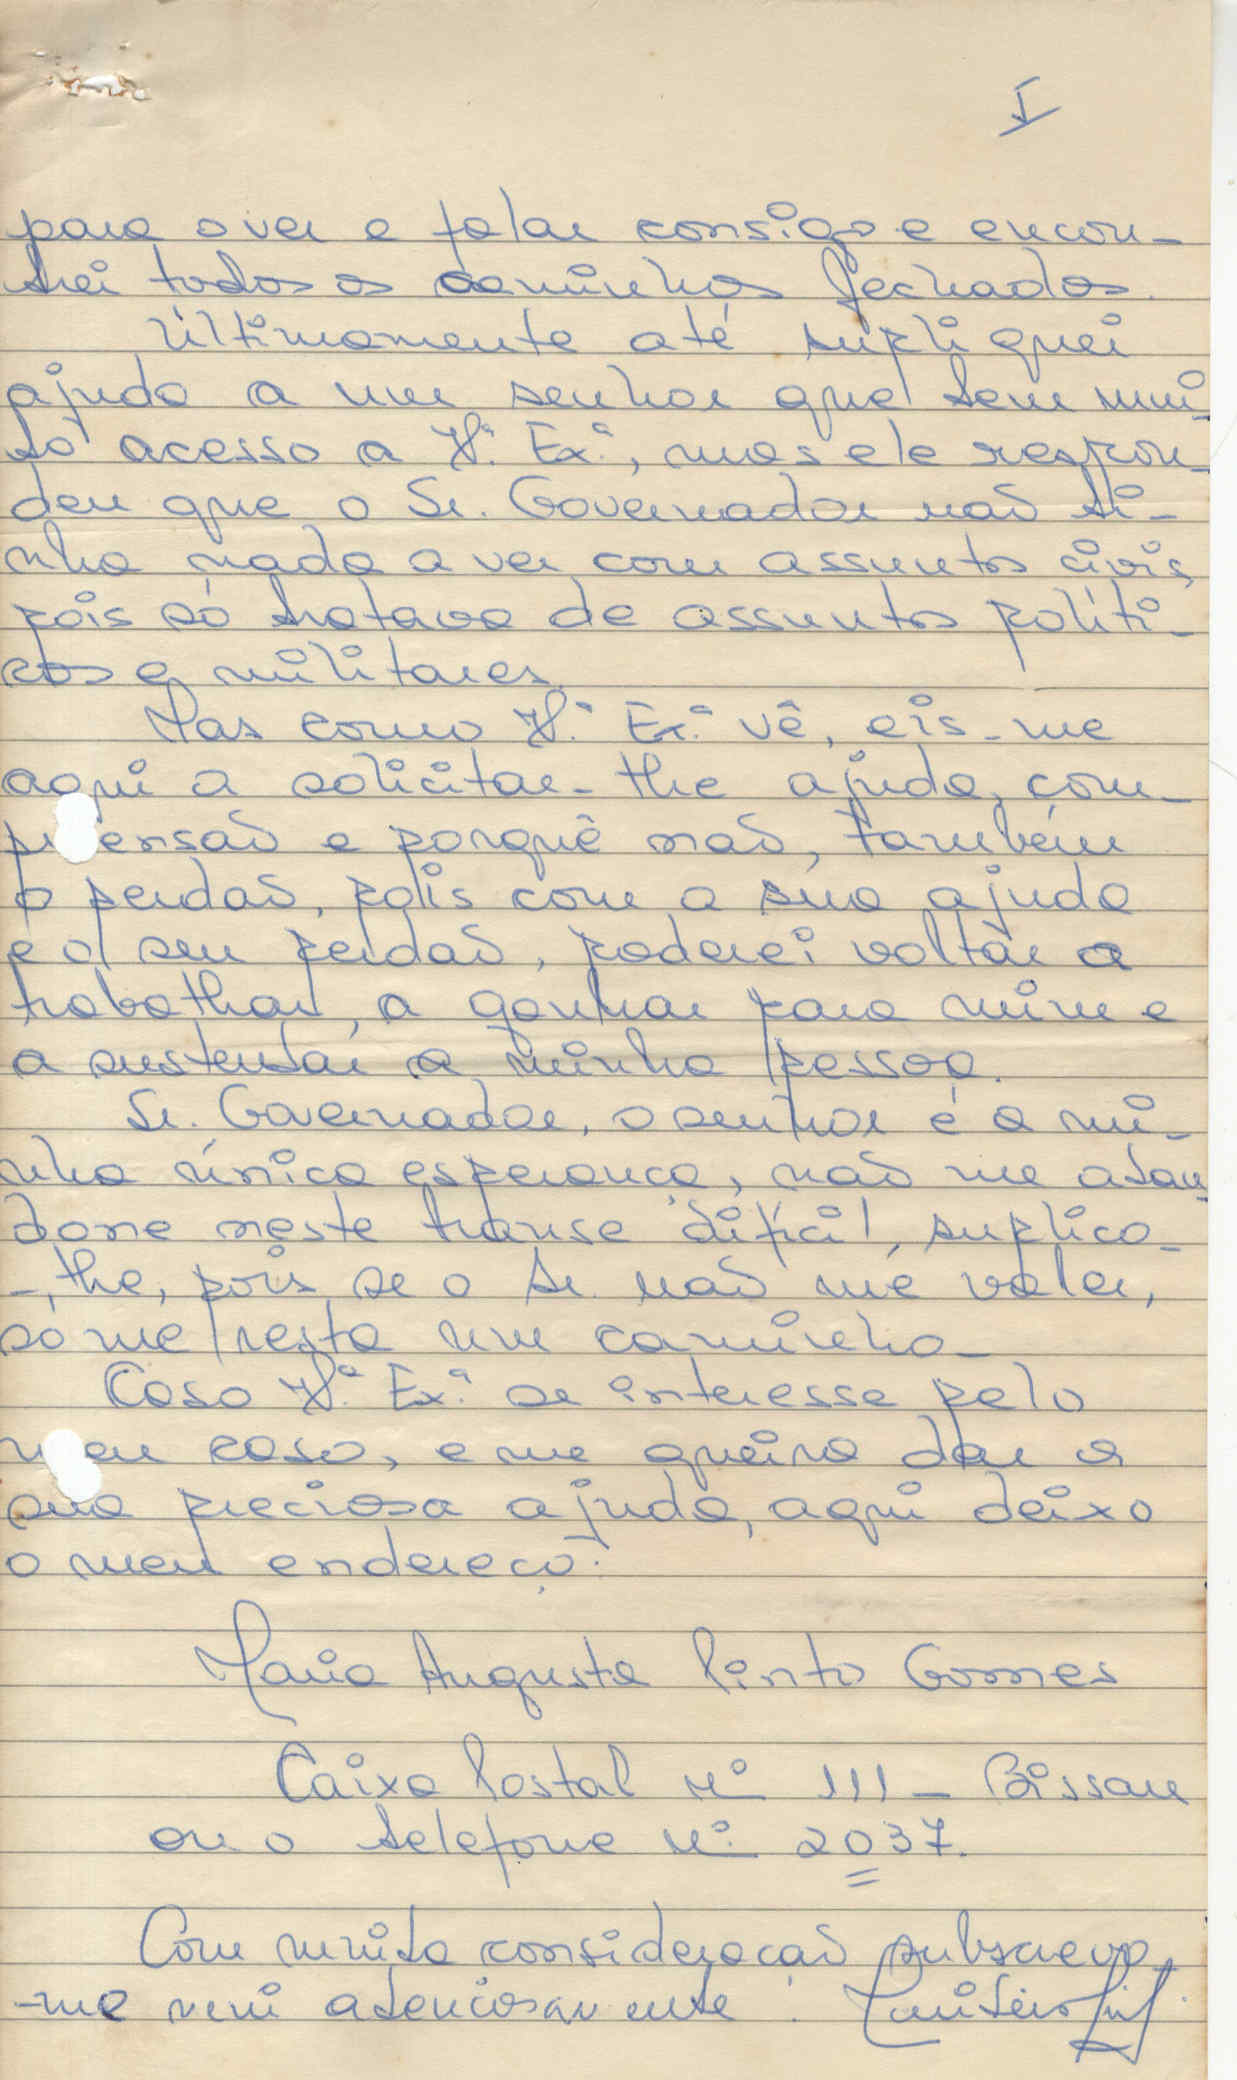 I
para o ver e falar consigo e encon-
trei todos os caminhos fechados.
Últimamente até supliquei
ajuda a um senhor que tem mui-
to acesso a Vª. Exª, mas ele respon-
deu que o Sr. Governador não ti-
nha nada a ver com assuntos civis,
pois só tratava de assuntos políti-
cos e militares.
Mas como Vª. Exª vê, eis-me
aqui a solicitar-lhe ajuda, com-
preensão e porquê não, também
o perdão, pois com a sua ajuda
e o seu perdão, poderei voltar a
trabalhar, a ganhar para mim e
a sustentar a minha pessoa.
Sr. Governador, o senhor é a mi-
nha única esperança, não me aban-
done neste transe difícil, suplico-
-lhe, pois se o Sr. não me valer,
só me resta um caminho -
Caso Vª. Exª. se interesse pelo
meu caso, e me queira dar a
sua preciosa ajuda, aqui deixo
o meu endereço:
Maria Augusta Pinto Gomes
Caixa Postal Nº 111 - Bissau
ou o telefone Nº. 2037.
Com muita consideração subscrevo-
-me mui atenciosamente.